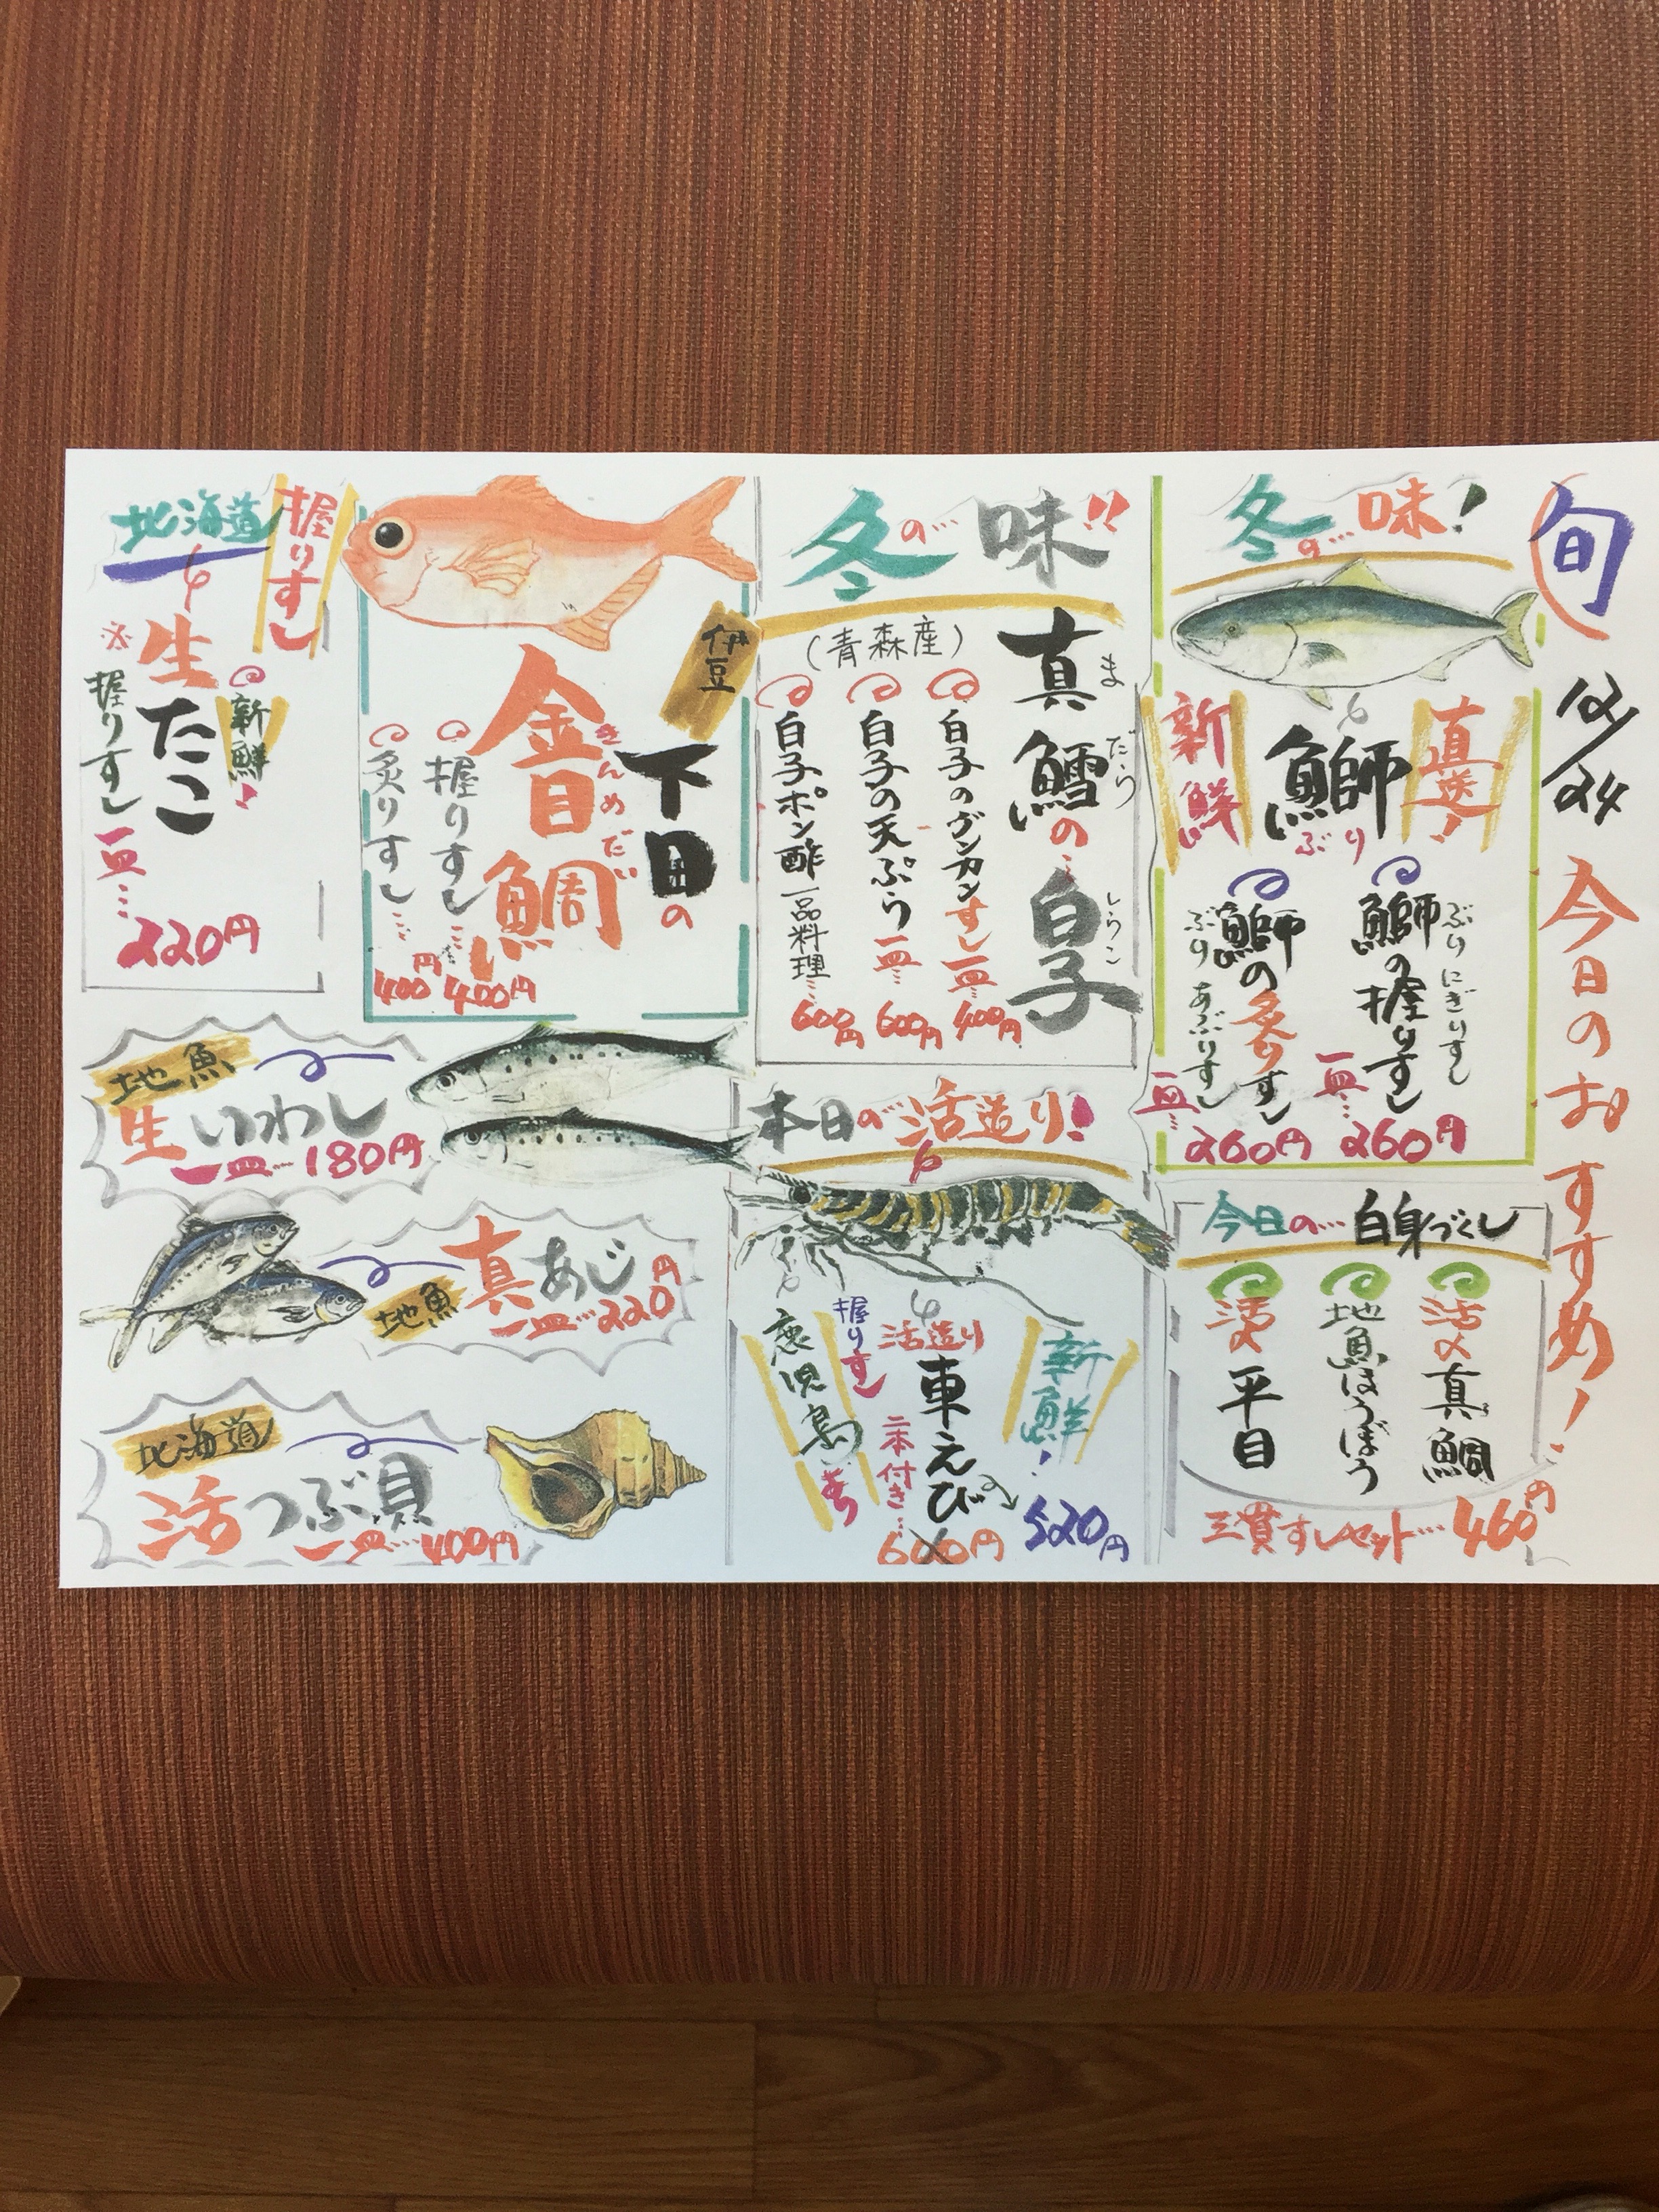 旬
12/24
今日のおすすめ！
冬の…味！
直送！
鰤
ぶり
新鮮
鰤の握りすし
ぶりにぎりすし
一皿…260円
鰤の炙りすし
ぶりあぶりすし
一皿…260円
今日の…白身づくし
活〆真鯛
地魚ほうぼう
活〆平目
三貫すしセット…460円
冬の…味!!
真鱈の…白子
まだら
しらこ
（青森産）
白子のグンカンすし一皿…400円
白子の天ぷら一皿…600円
白子ポン酢一品料理…600円
本日の活造り！
新鮮！
活造り
車えび
二本付き…
600円
520円
握りすし
鹿児島産
伊豆
下田の
金目鯛
きんめだい
握りすし…400円
炙りすし…400円
握りすし
北海道
新鮮！
※生たこ
握りすし
一皿…220円
地魚
生いわし
一皿…180円
真あじ
地魚
一皿…220円
北海道
活つぶ貝
一皿…400円